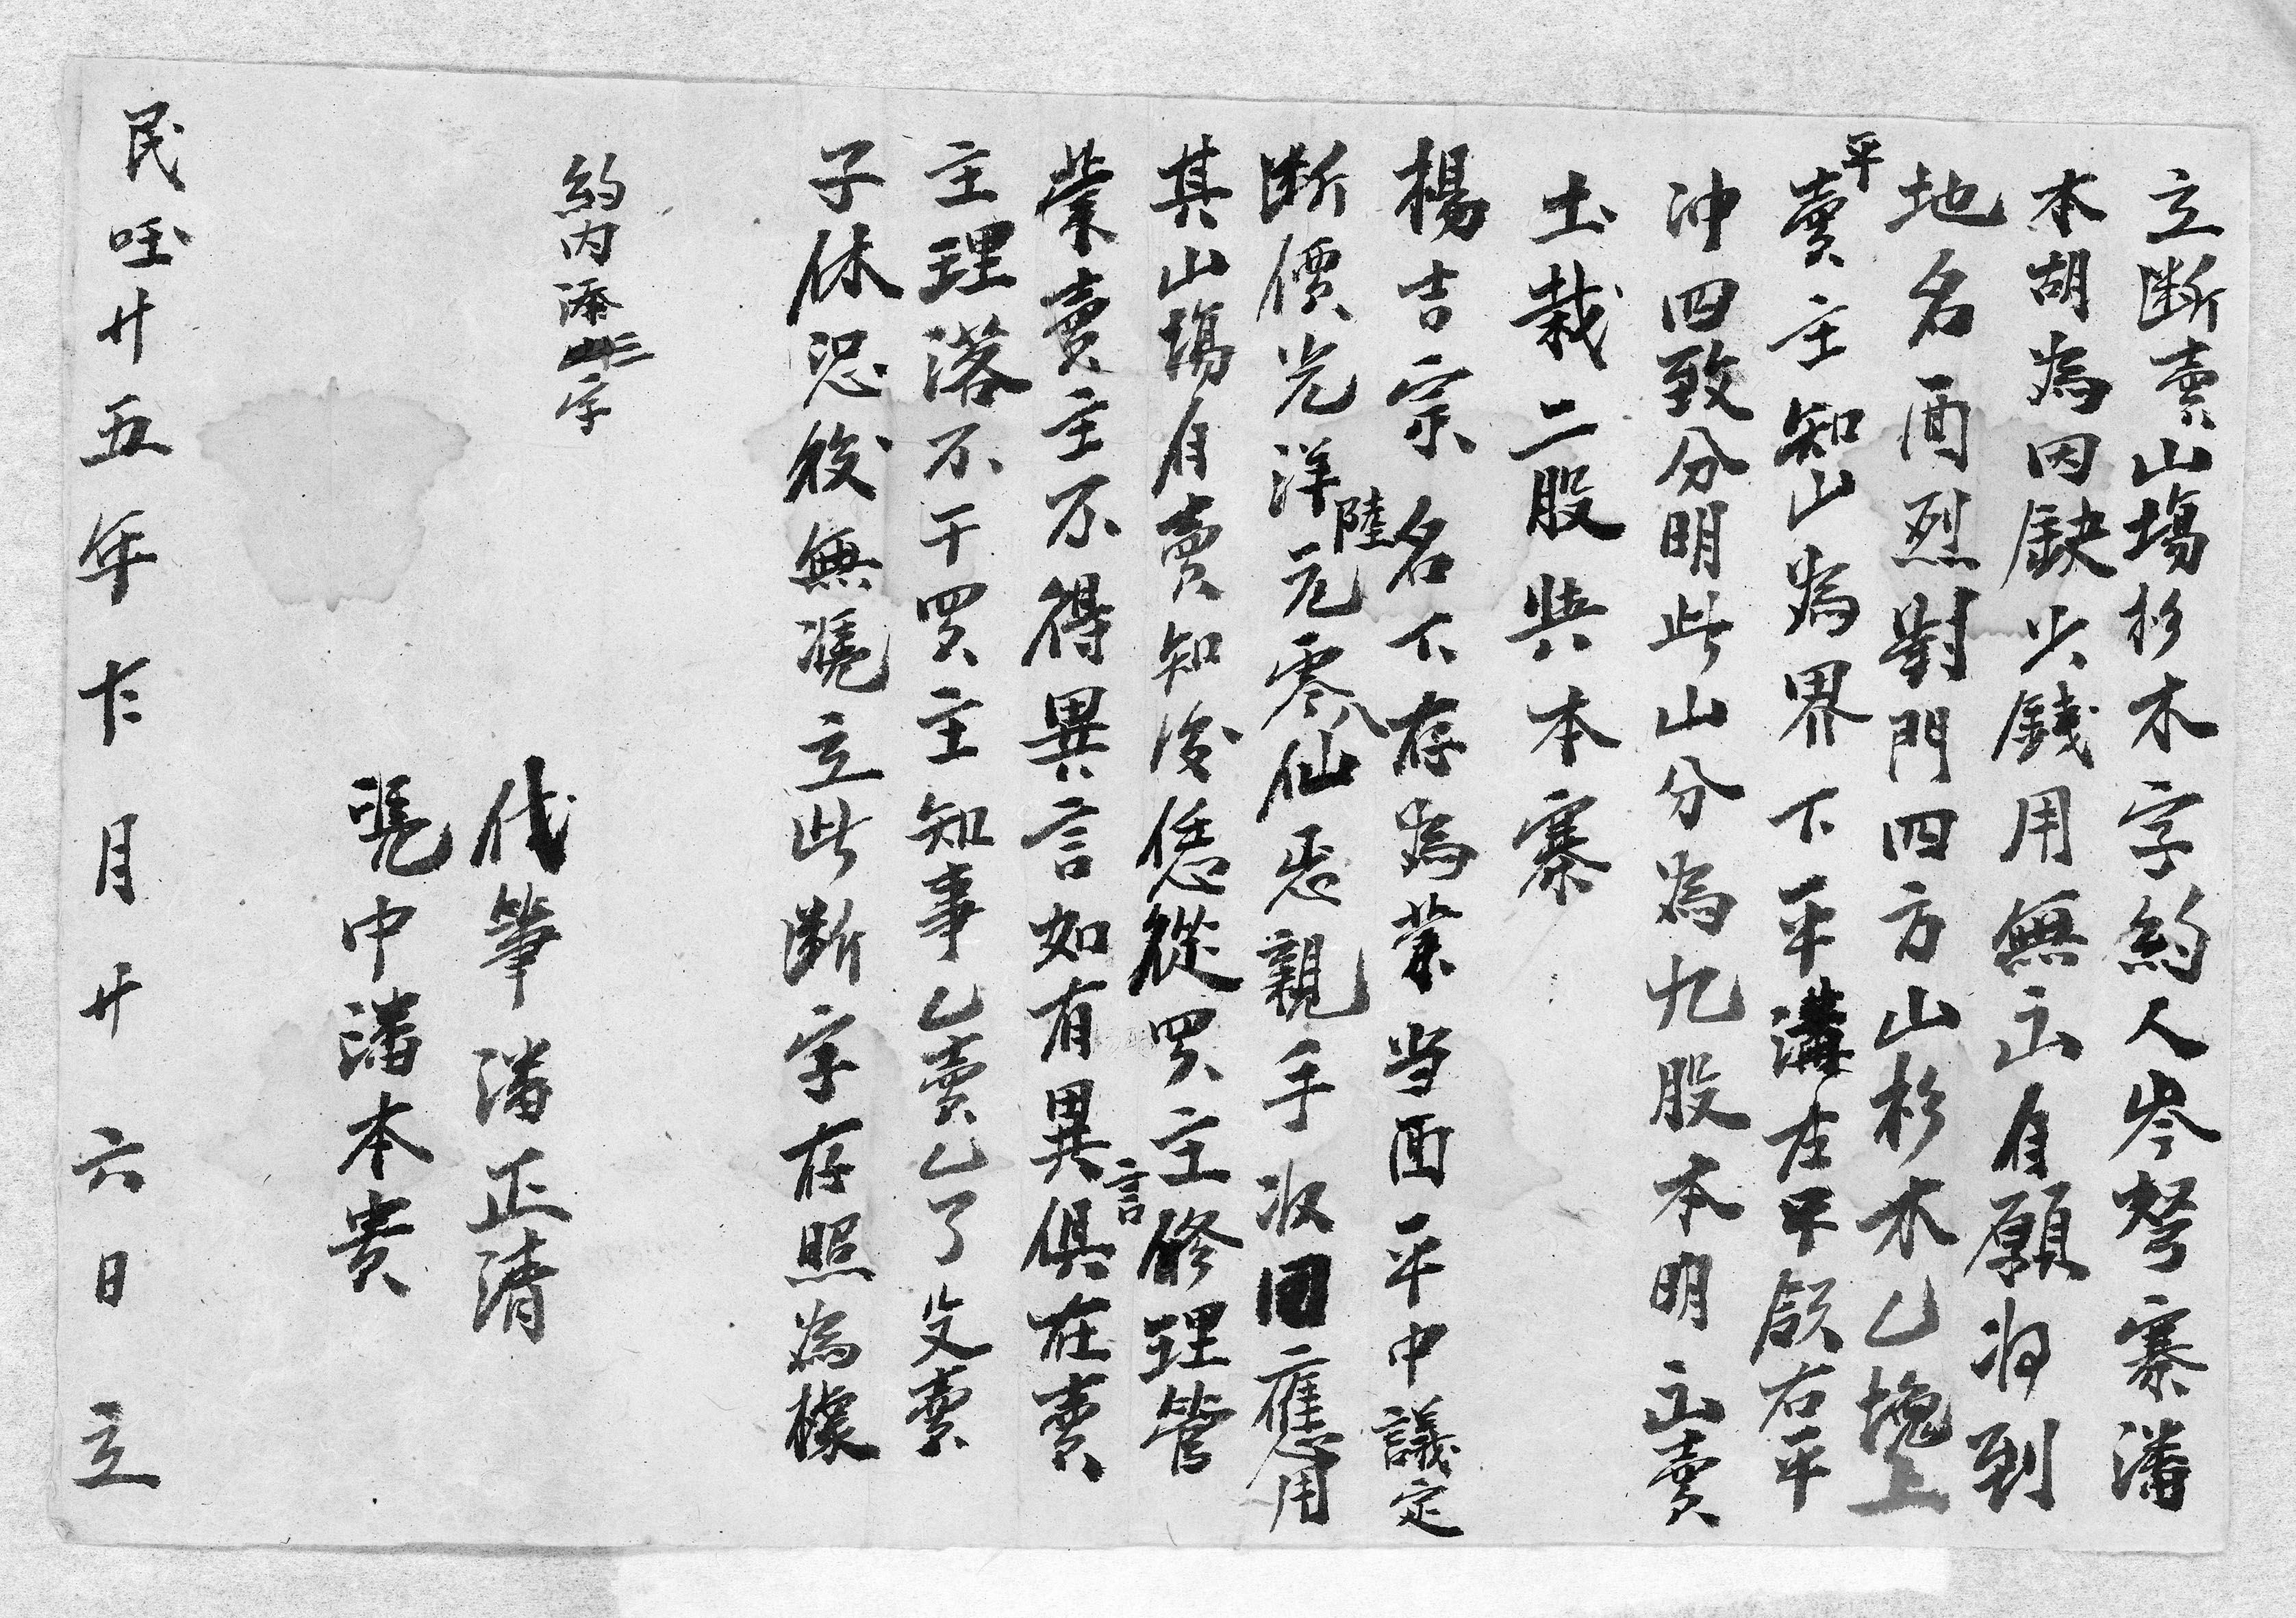 立断賣山塲杉木字約人岑孥寨潘
本胡為因缺少錢用無山自願將到
地名酉烈對門四方山杉木乙塊上
平賣主知山為界下平溝左平領右平
冲四致分明此山分為九股本明山賣
土栽二股與本寨
楊吉宗名下存為業当面平中議定
断價光洋陸元零八仙悉親手收回應用
其山塲自賣知後恁從買主修理管
業賣主不得異言如有異言俱在賣
主理落不干買主知事乙賣乙了父賣
子休恐後無憑立此断字存照為據
約内添三字
代筆潘正清
憑中潘本貴
民國廿五年 月廿六日立